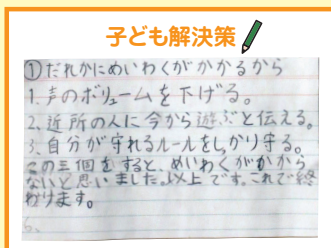 子ども解決策
①だれかにめいわくがかかるから
1.声のボリュームを下げる。
2.近所の人に今から遊ぶと伝える。
3.自分が守れるルールをしっかり守る。
この三個をすると、めいわくがかから
ないと思いました。以上です。これで終
わります。
6.